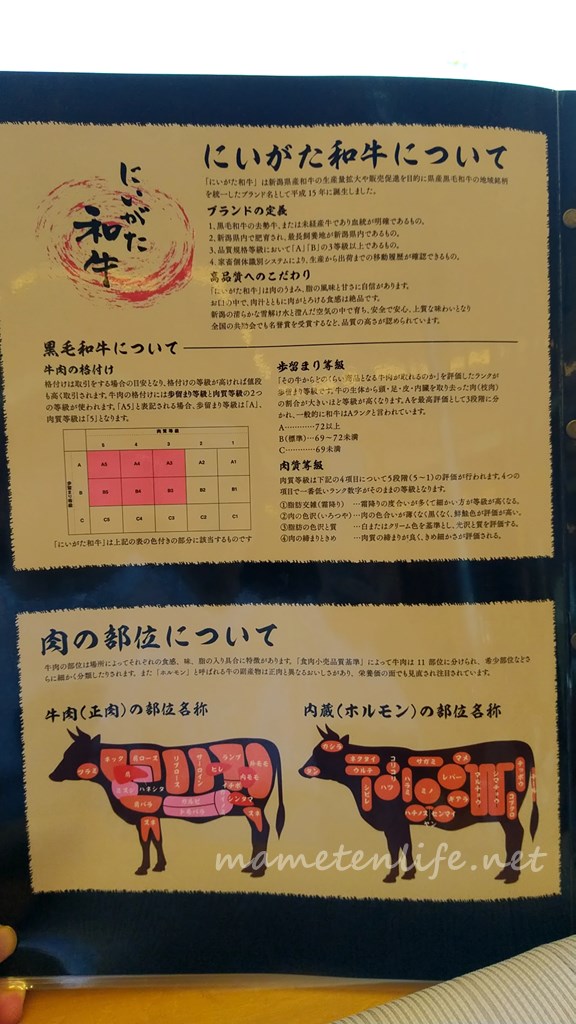 にいがた和牛
にいがた和牛について
「にいがた和牛」は新潟県産和牛の生産量拡大や販売促進を目的に県産黒毛和牛の地域銘柄
を統一したブランド名として平成15年に誕生しました。
ブランドの定義
1、黒毛和牛の去勢牛、または未経産牛であり血統が明確であるもの。
2、新潟県内で肥育され、最長飼養地が新潟県内であるもの。
3、品質規格等級において「A」「B」の3等級以上であるもの。
4、家畜個体識別システムにより、生産から出荷までの移動履歴が確認できるもの。
高品質へのこだわり
「にいがた和牛」は肉のうまみ、脂の風味と甘さに自信があります。
お口の中で、肉汁とともに肉がとろける食感は絶品です。
新潟の清らかな雪解け水と澄んだ空気の中で育ち、安全で安心、上質な味わいとなり
全国の共励会でも名誉賞を受賞するなど、品質の高さが認められています。
黒毛和牛について
牛肉の格付け
格付けは取引をする場合の目安となり、格付けの等級が高ければ値段
も高く取引されます。牛肉の格付けには歩留まり等級と肉質等級の2つ
の等級が使われます。「A5」と表記される場合、歩留まり等級は「A」、
肉質等級は「5」となります。
肉質等級
5 4 3 2 1
歩留まり等級
A A5 A4 A3 A2 A1
B B5 B4 B3 B2 B1
C C5 C4 C3 C2 C1
「にいがた和牛」は上記の表の色付きの部分に該当するものです
歩留まり等級
「その牛からどのくらい商品となる牛肉が取れるのか」を評価したランクが
歩留まり等級です。牛の生体から頭・足・皮・内臓を取り去った肉(枝肉)
の割合が大きいほど等級が高くなります。Aを最高評価として3段階に分
かれ、一般的に和牛はAランクと言われています。
A…………72以上
B(標準)…69～72未満
C…………69未満
肉質等級
肉質等級は下記の4項目について5段階(5～1)の評価が行われます。4つの
項目で一番低いランク数字がそのままの等級となります。
①脂肪交雑(霜降り) …霜降りの度合いが多くて細かい方が等級が高くなる。
②肉の色沢(いろつや)…肉の色合いが薄くなく黒くなく、鮮紅色が評価が高い。
③脂肪の色沢と質 …白またはクリーム色を基準とし、光沢と質を評価する。
④肉の締まりときめ …肉質の締まりが良く、きめ細かさが評価される。
肉の部位について
牛肉の部位は場所によってそれぞれの食感、味、脂の入り具合に特徴があります。「食肉小売品質基準」によって牛肉は11部位に分けられ、希少部位などさ
らに細かく分類したりされます。また「ホルモン」と呼ばれる牛の副産物は正肉と異なるおいしさがあり、栄養価の面でも見直され注目されています。
牛肉(正肉)の部位名称
ネック
肩ロース
リブロース
サーロイン
ヒレ
ランプ
ツラミ
ハネシタ
肩バラ
カルビ
トモバラ
イチボ
シンタマ
内モモ
スネ
スネ
内蔵(ホルモン)の部位名称
カシラ
タン
ネクタイ
ウルテ
シビレ
コリコリ
ハツ
サガリ
ハラミ
ミノ
マメ
レバー
ギアラ
ハチノス
センマイ
マルチョウ
シマチョウ
テッポウ
コブクロ
テール
mametenlife.net